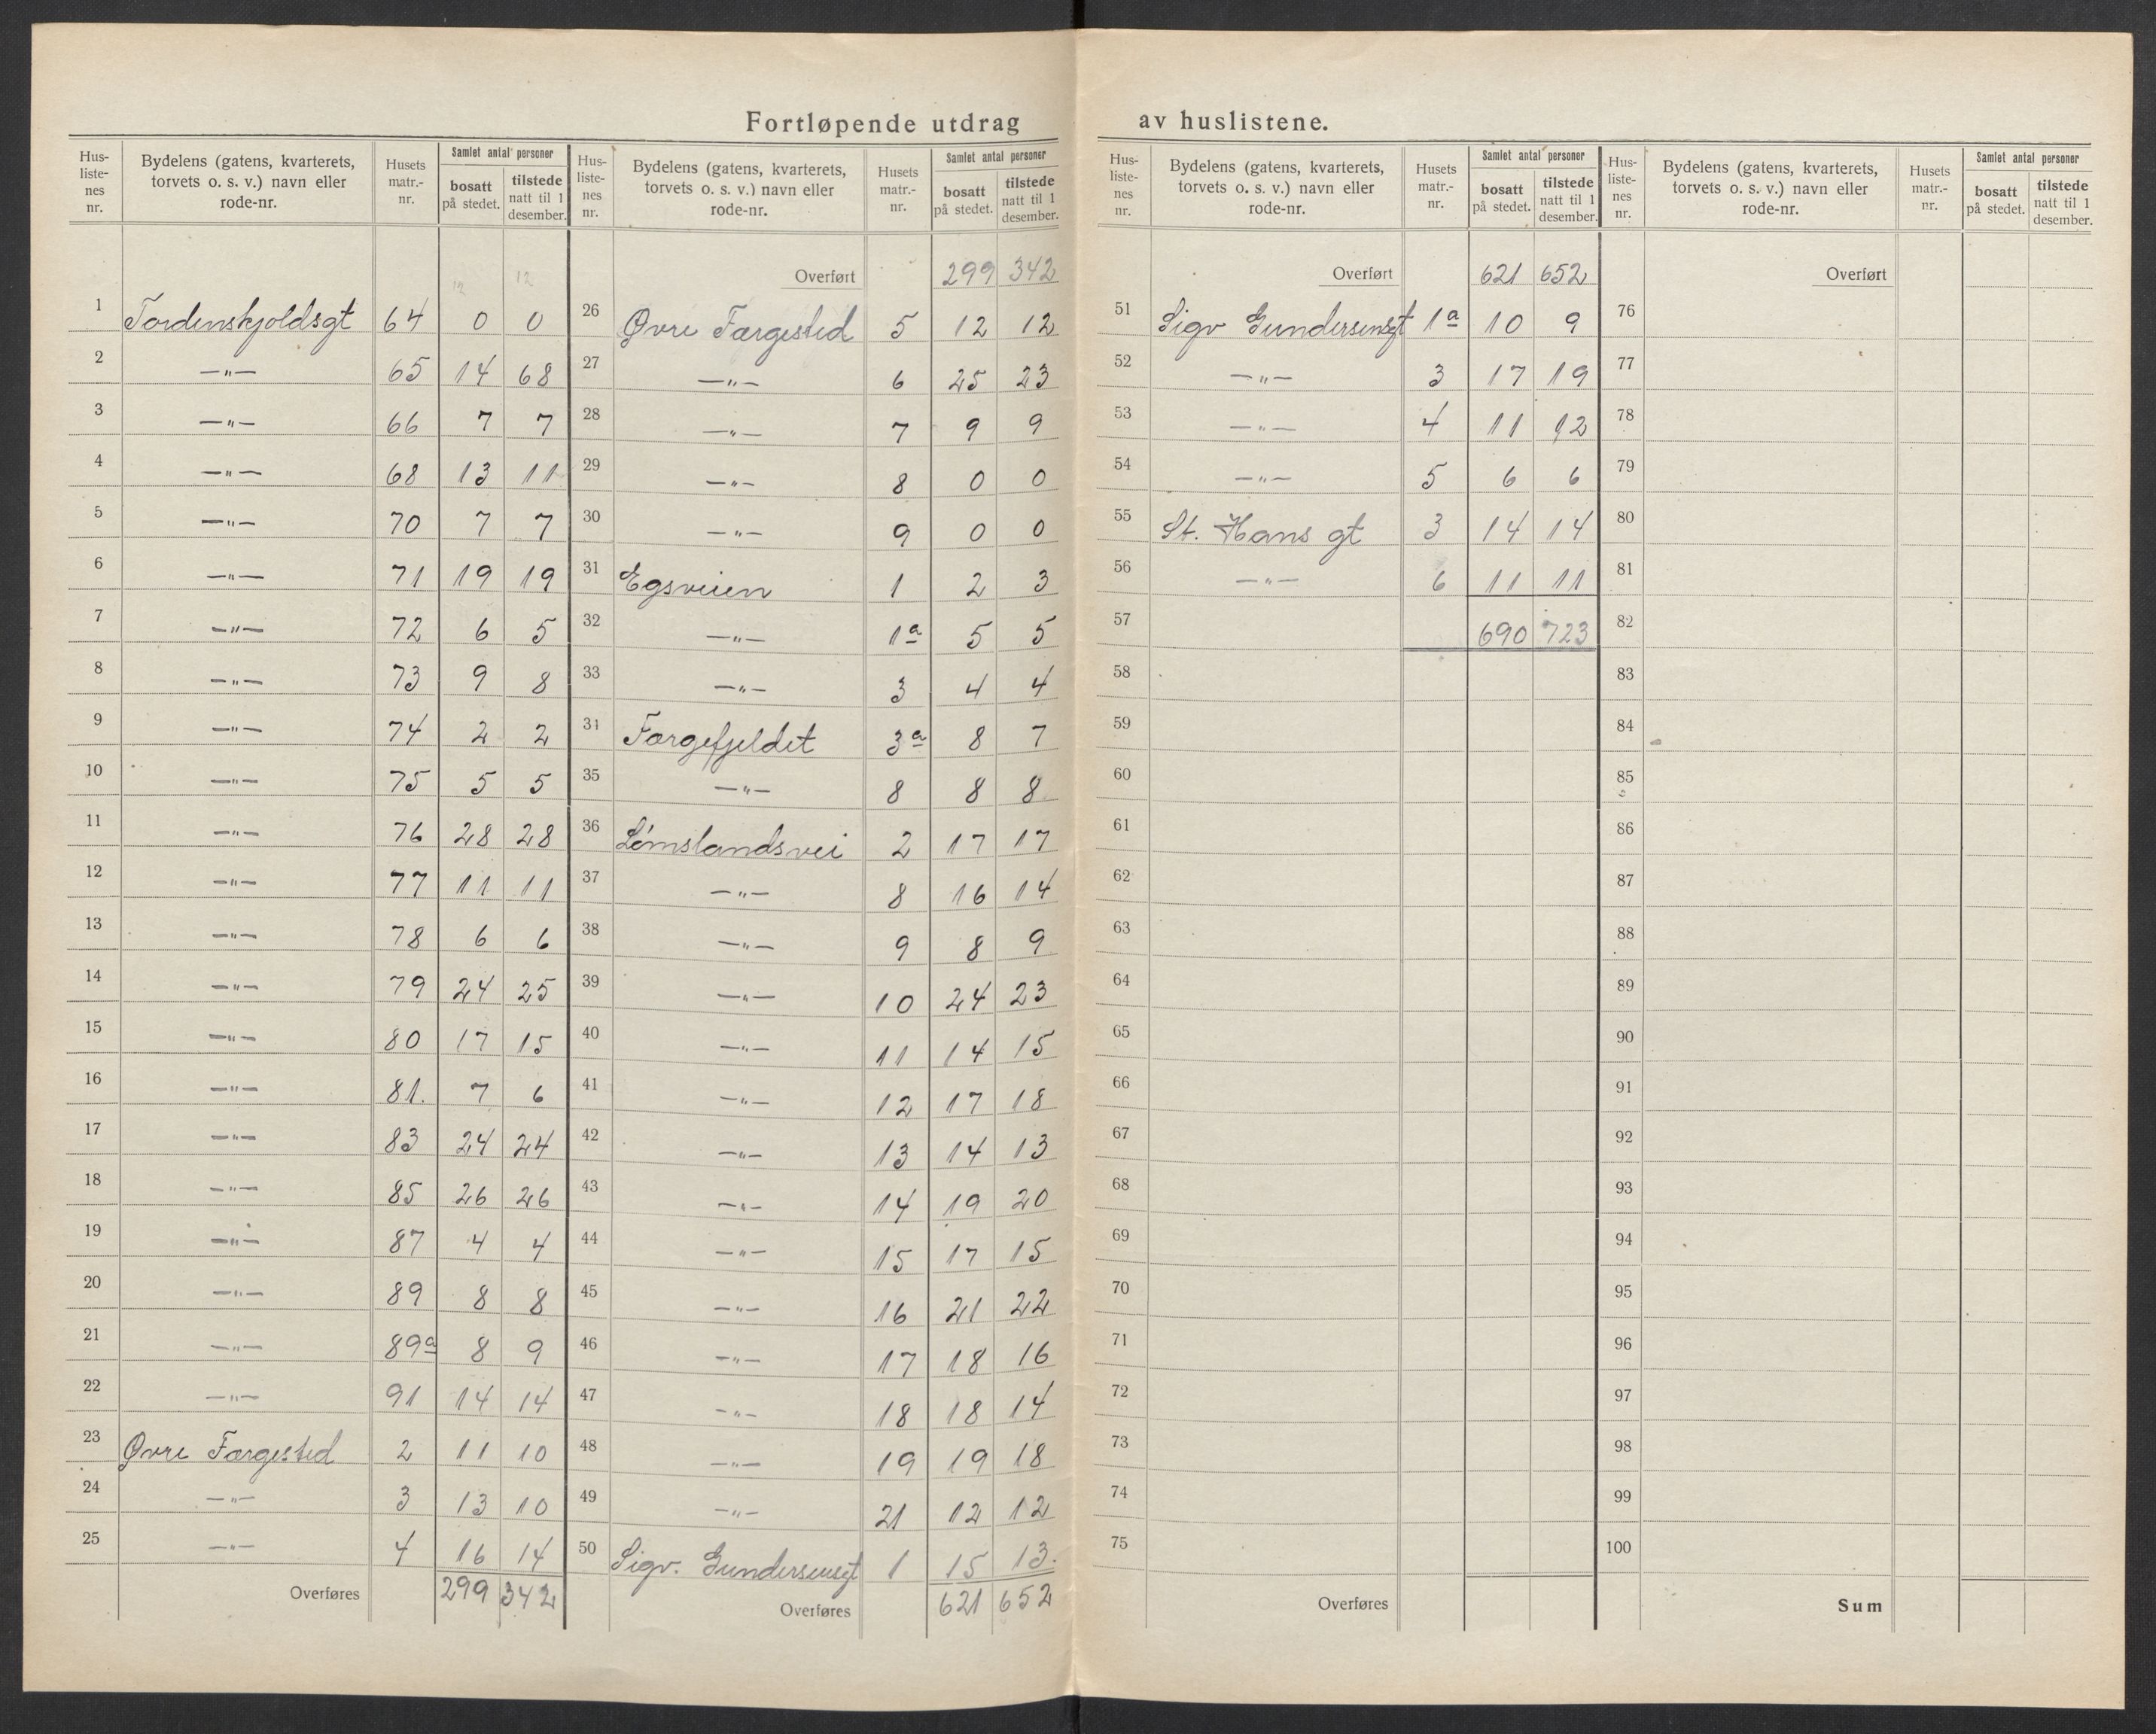 Fortløpende utdrag av huslistene.
Hus-listenes nr. | Bydelens (gatens, kvarterets, torvets o. s. v.) navn eller rode-nr. | Husets matr.-nr. | Samlet antal personer bosatt på stedet. | tilstede natt til 1 desember.
12 12
1 Tordenskjoldsgt 64 0 0
2 —„— 65 14 68
3 —„— 66 7 7
4 —„— 68 13 11
5 —„— 70 7 7
6 —„— 71 19 19
7 —„— 72 6 5
8 —„— 73 9 8
9 —„— 74 2 2
10 —„— 75 5 5
11 —„— 76 28 28
12 —„— 77 11 11
13 —„— 78 6 6
14 —„— 79 24 25
15 —„— 80 17 15
16 —„— 81. 7 6
17 —„— 83 24 24
18 —„— 85 26 26
19 —„— 87 4 4
20 —„— 89 8 8
21 —„— 89a 8 9
22 —„— 91 14 14
23 Øvre Færgested 2 11 10
24 —„— 3 13 10
25 —„— 4 16 14
Overføres 299 342
Hus-listenes nr. | Bydelens (gatens, kvarterets, torvets o. s. v.) navn eller rode-nr. | Husets matr.-nr. | Samlet antal personer bosatt på stedet. | tilstede natt til 1 desember.
Overført 299 342
26 Øvre Færgested 5 12 12
27 —„— 6 25 23
28 —„— 7 9 9
29 —„— 8 0 0
30 —„— 9 0 0
31 Egsveien 1 2 3
32 —„— 1a 5 5
33 —„— 3 4 4
34 Færgefjeldet 3a 8 7
35 —„— 8 8 8
36 Lømslandsvei 2 17 17
37 —„— 8 16 14
38 —„— 9 8 9
39 —„— 10 24 23
40 —„— 11 14 15
41 —„— 12 17 18
42 —„— 13 14 13
43 —„— 14 19 20
44 —„— 15 17 15
45 —„— 16 21 22
46 —„— 17 18 16
47 —„— 18 18 14
48 —„— 19 19 18
49 —„— 21 12 12
50 Sigv. Gundersensgt 1 15 13.
Overføres 621 652
Hus-listenes nr. | Bydelens (gatens, kvarterets, torvets o. s. v.) navn eller rode-nr. | Husets matr.-nr. | Samlet antal personer bosatt på stedet. | tilstede natt til 1 desember.
Overført 621 652
51 Sigv Gundersensgt 1a 10 9
52 —„— 3 17 19
53 —„— 4 11 12
54 —„— 5 6 6
55 St. Hans gt 3 14 14
56 —„— 6 11 11
57 690 723
58
59
60
61
62
63
64
65
66
67
68
69
70
71
72
73
74
75
Overføres
Hus-listenes nr. | Bydelens (gatens, kvarterets, torvets o. s. v.) navn eller rode-nr. | Husets matr.-nr. | Samlet antal personer bosatt på stedet. | tilstede natt til 1 desember.
Overført
76
77
78
79
80
81
82
83
84
85
86
87
88
89
90
91
92
93
94
95
96
97
98
99
100
Sum